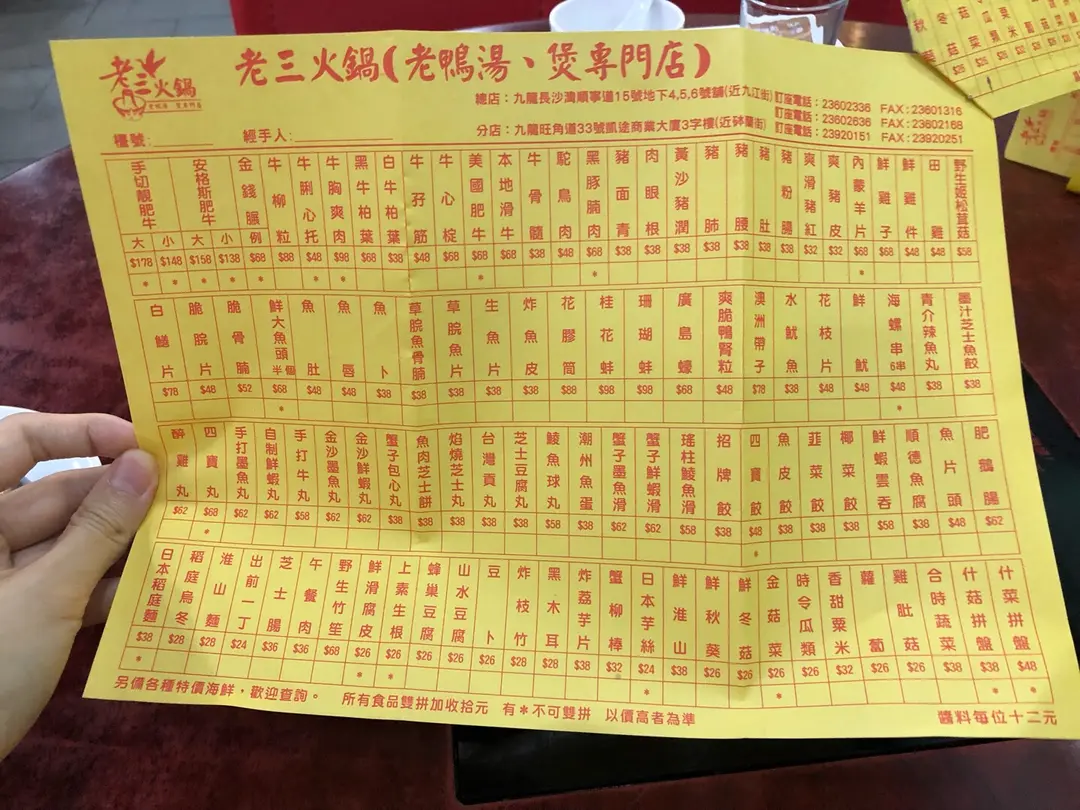 老三火鍋
老三火鍋(老鴨湯、煲專門店)
總店：九龍長沙灣順寧道15號地下4,5,6號舖(近九江街) 訂座電話：23602336 FAX:23601316
訂座電話：23602636 FAX:23602168
分店：九龍旺角道33號凱途商業大廈3字樓(近砵蘭街) 訂座電話：23920151 FAX:23920251
檯號: 經手人:
手切靚肥牛 大 $178 * 小 $148 *
安格斯肥牛 大 $158 * 小 $138 *
金錢𦟌 例 $68
牛柳粒 $88
牛脷心托 $48 *
牛胸爽肉 $98 *
黑牛柏葉 $68
白牛柏葉 $38
牛孖筋 $48
牛心椗 $68
美國肥牛 $68 *
本地滑牛 $68
牛骨髓 $38
駝鳥肉 $48
黑豚腩肉 $68 *
豬面青 $38
肉眼根 $38
黃沙豬潤 $38
豬肺 $38
豬腰 $38
豬肚 $38
豬粉腸 $38
爽滑豬紅 $32
爽豬皮 $32
內蒙羊片 $68 *
鮮雞子 $68
鮮雞件 $48
田雞 $48
野生姬松茸菇 $58
白鱔片 $78
脆脘片 $48
脆骨腩 $52
鮮大魚頭 半個 $68 *
魚肚 $48
魚唇 $48
魚卜 $38
草脘魚骨腩 $38
草脘魚片 $38
生魚片 $38
炸魚皮 $38
花膠筒 $88
桂花蚌 $98
珊瑚蚌 $98
廣島蠔 $68
爽脆鴨腎粒 $48
澳洲帶子 $78
水魷魚 $38
花枝片 $48
鮮魷 $48
海螺串 6串 $48 *
青介辣魚丸 $38
墨汁芝士魚餃 $38
醉雞丸 $62
四寶丸 $68 *
手打墨魚丸 $62
自制鮮蝦丸 $62
手打牛丸 $58
金沙墨魚丸 $62
金沙鮮蝦丸 $62
蟹子包心丸 $38
魚肉芝士餅 $38
焰燒芝士丸 $38
台灣貢丸 $38
芝士豆腐丸 $38
鯪魚球丸 $58
潮州魚蛋 $38
蟹子墨魚滑 $62
蟹子鮮蝦滑 $62
瑤柱鯪魚滑 $58
招牌餃 $38
四寶餃 $48 *
魚皮餃 $38
韮菜餃 $38
椰菜餃 $38
鮮蝦雲吞 $58
順德魚腐 $38
魚片頭 $48
肥鵝腸 $62
日本稻庭麵 $38 *
稻庭烏冬 $28
淮山麵 $28
出前一丁 $24
芝士腸 $36
午餐肉 $36
野生竹笙 $68
鮮滑腐皮 $26 *
上素生根 $26 *
蜂巢豆腐 $26
山水豆腐 $26
豆卜 $26
炸枝竹 $28
黑木耳 $28
炸荔芋片 $38
蟹柳棒 $32
日本芋絲 $24 *
鮮淮山 $38
鮮秋葵 $26
鮮冬菇 $26
金菇菜 $26 *
時令瓜類 $26
香甜粟米 $32
蘿蔔 $26
雞肶菇 $26
合時蔬菜 $38
什菇拼盤 $38 *
什菜拼盤 $48 *
另備各種特價海鮮，歡迎查詢。 所有食品雙拼加收拾元 有*不可雙拼 以價高者為準
醬料每位十二元